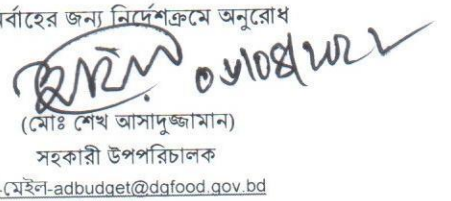 র্বাহের জন্য নির্দেশক্রমে অনুরোধ
(মোঃ শেখ আসাদুজ্জামান)
সহকারী উপপরিচালক
-মেইল-adbudget@dgfood.gov.bd